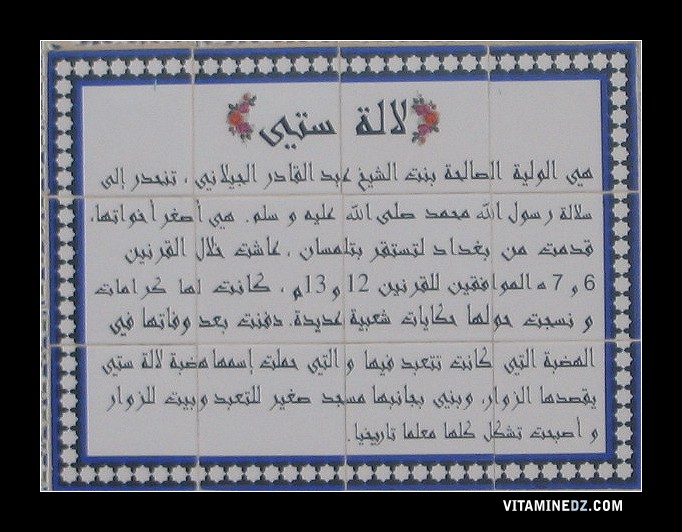 لالة ستي
هي الولية الصالحة بنت الشيخ عبد القادر الجيلاني ، تنحدر إلى
سلالة رسول الله محمد صلى الله عليه و سلم. هي أصغر أخواتها،
قدمت من بغداد لتستقر بتلمسان ، عاشت خلال القرنين
6 و 7 ه الموافقين للقرنين 12 و 13م ، كانت لها كرامات
و نسجت حولها حكايات شعبية عديدة. دفنت بعد وفاتها في
الهضبة التي كانت تتعبد فيها و التي حملت إسمها هضبة لالة ستي
يقصدها الزوار، وبني بجانبها مسجد صغير للتعبد وبيت للزوار
و أصبحت تشكل كلها معلما تاريخيا.
VITAMINEDZ.COM